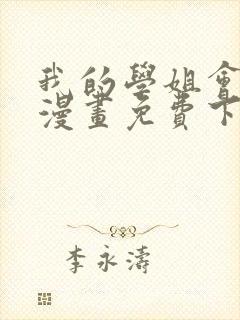 我的學姐會
漫畫免費下
李永濤